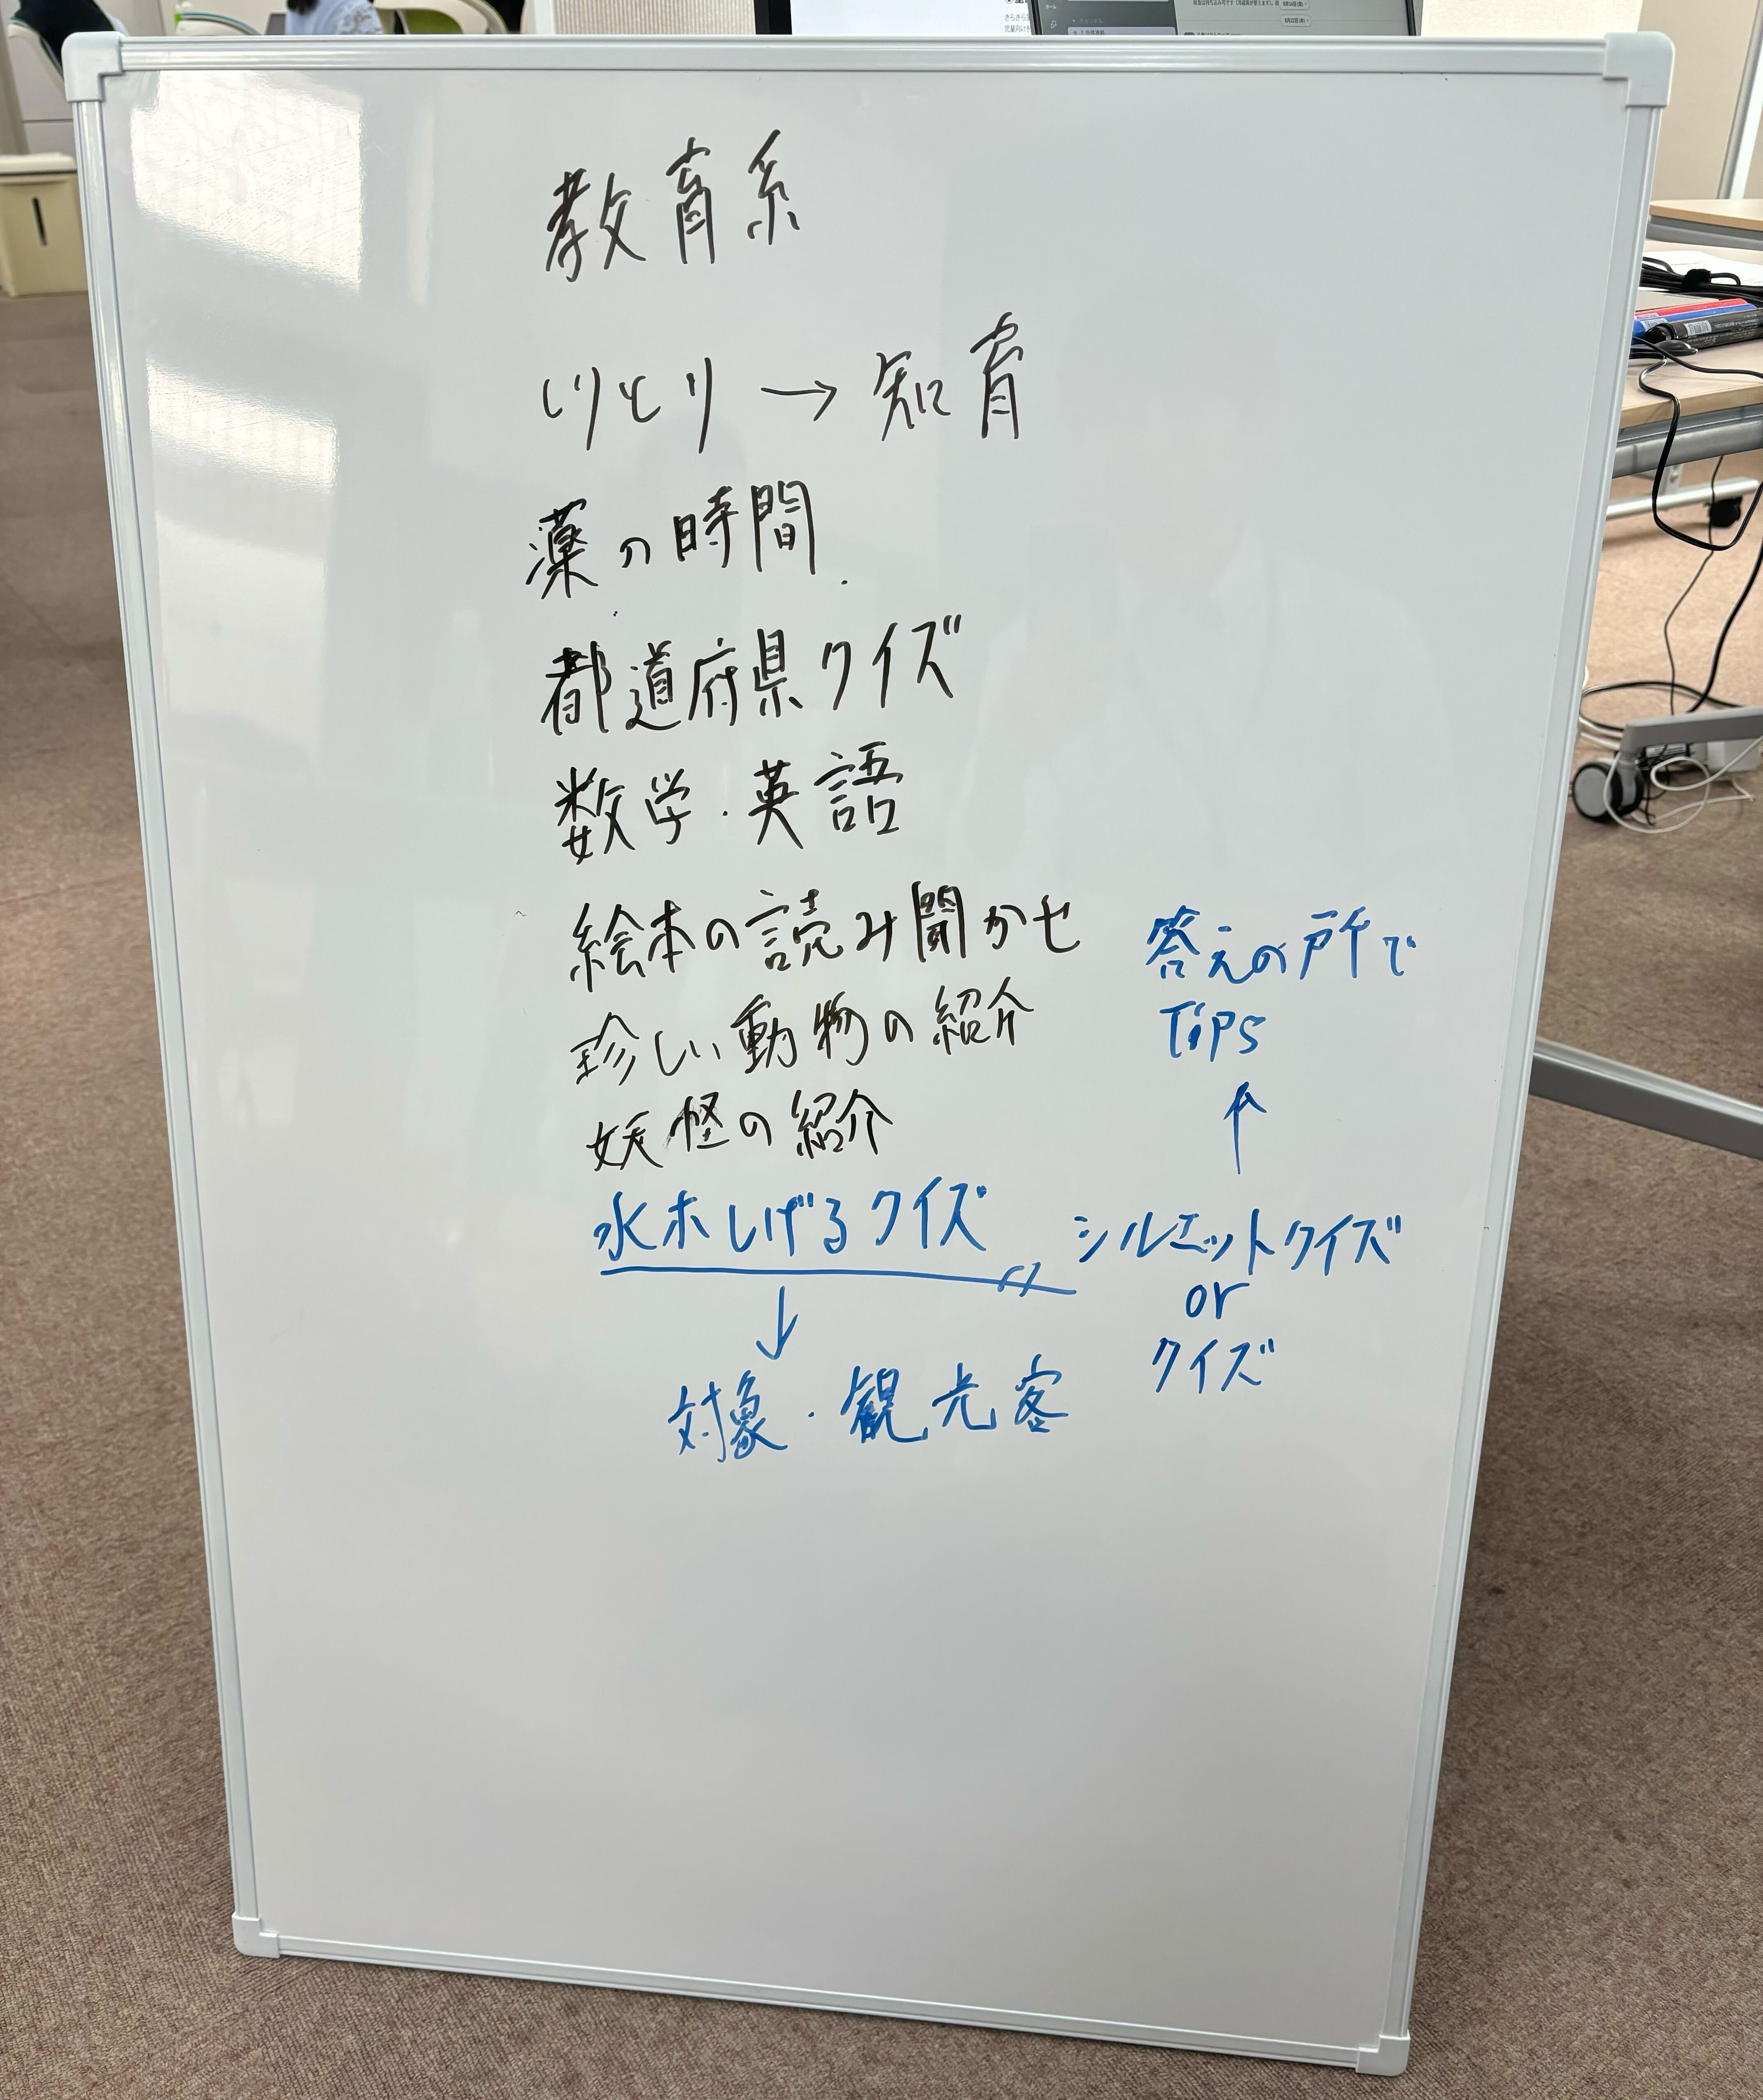 教育系
しりとり → 知育
薬の時間
都道府県クイズ
数学・英語
絵本の読み聞かせ
珍しい動物の紹介
妖怪の紹介
水木しげるクイズ
↓
対象・観光客
答えの所で
Tips
↑
シルエットクイズ
or
クイズ